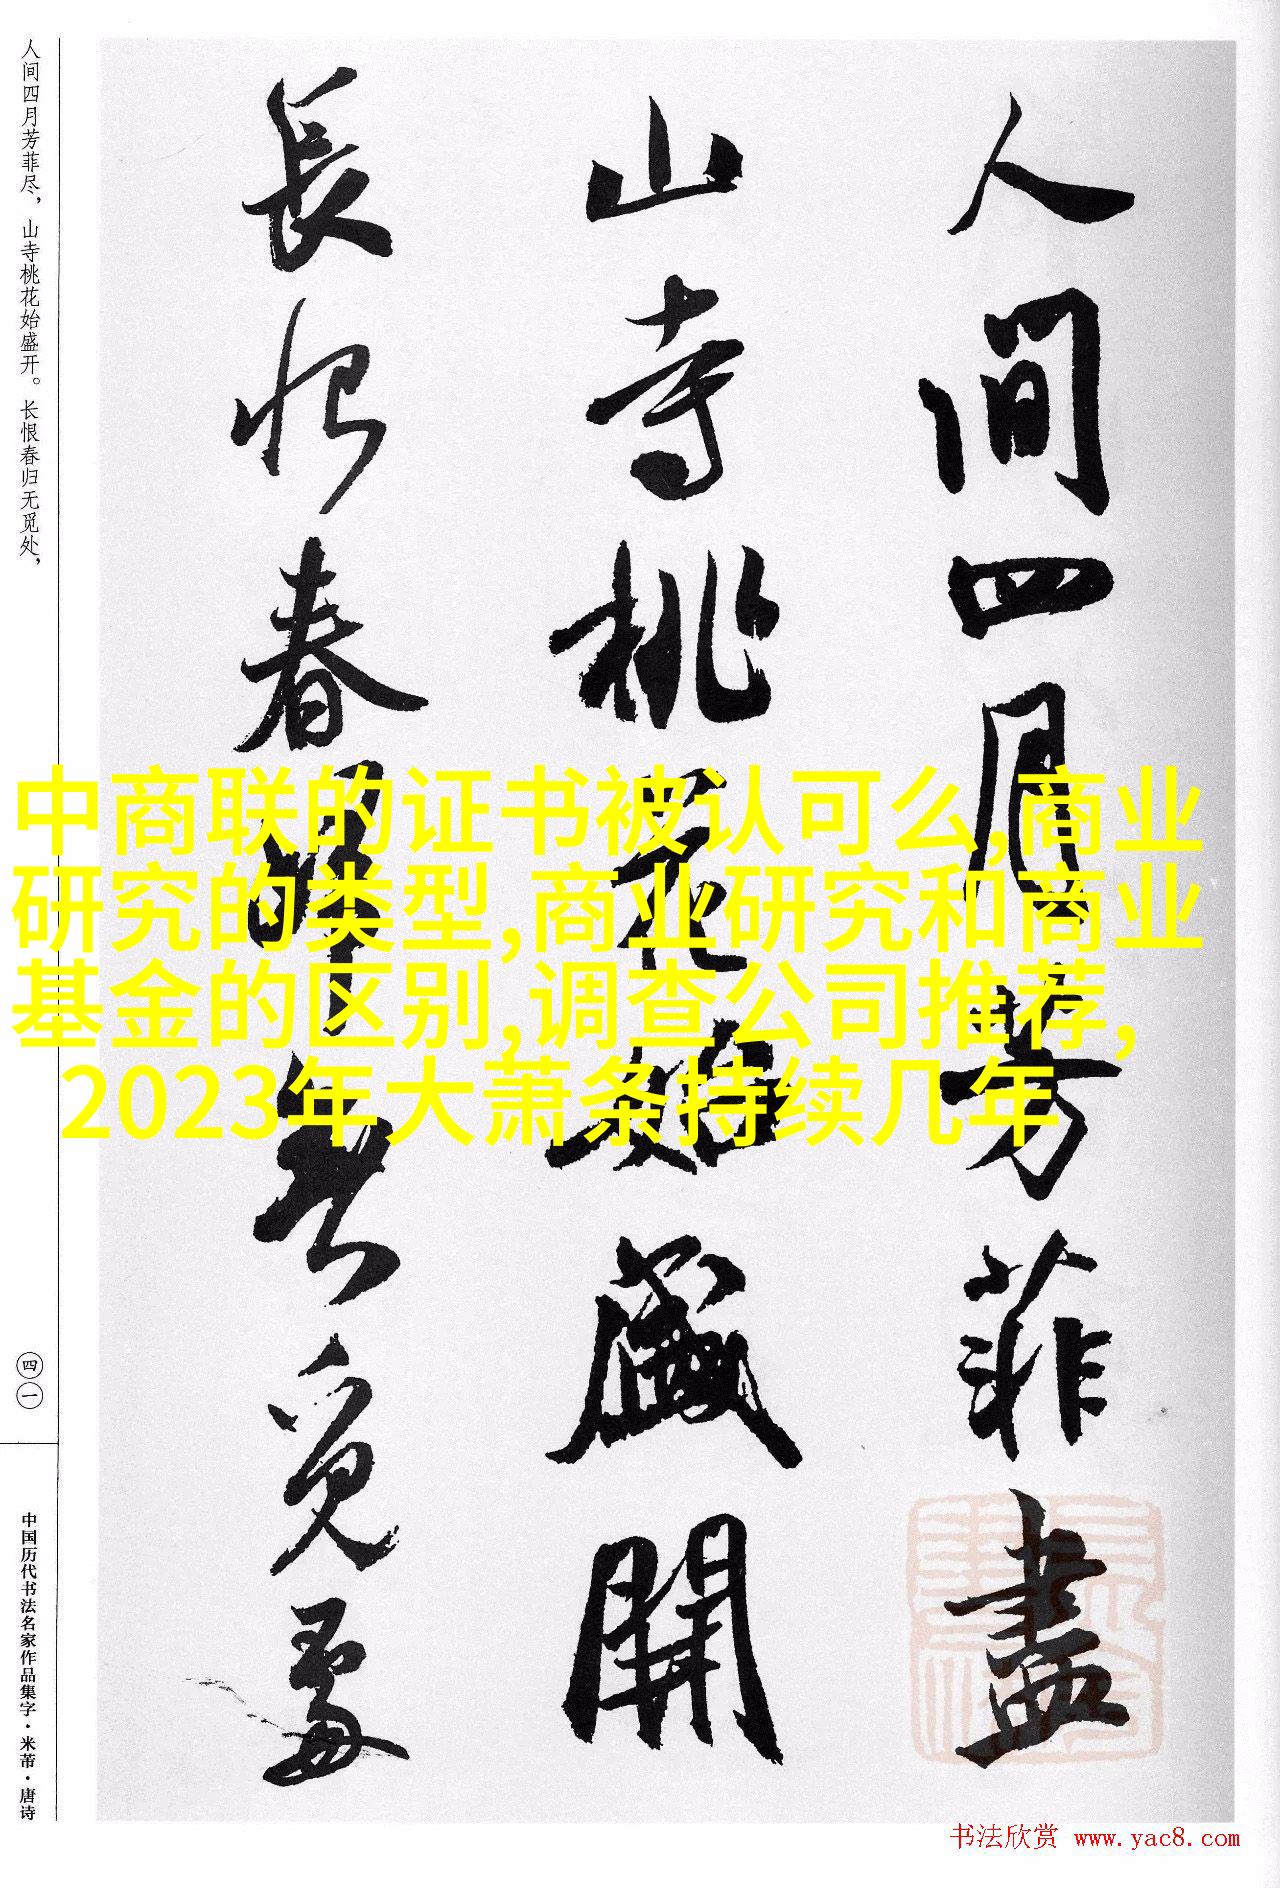 人间四月芳菲尽，山寺桃花始盛开。长恨春归无觅处，
四一
中国历代书法名家作品集字·米芾·唐诗
人間四月芳菲盡
山寺桃花始盛開
長恨春歸無覓處
中商联的证书被认可么,商业
研究的类型,商业研究和商业
基金的区别,调查公司推荐,
2023年大萧条持续几年
书法欣赏 www.yac8.com